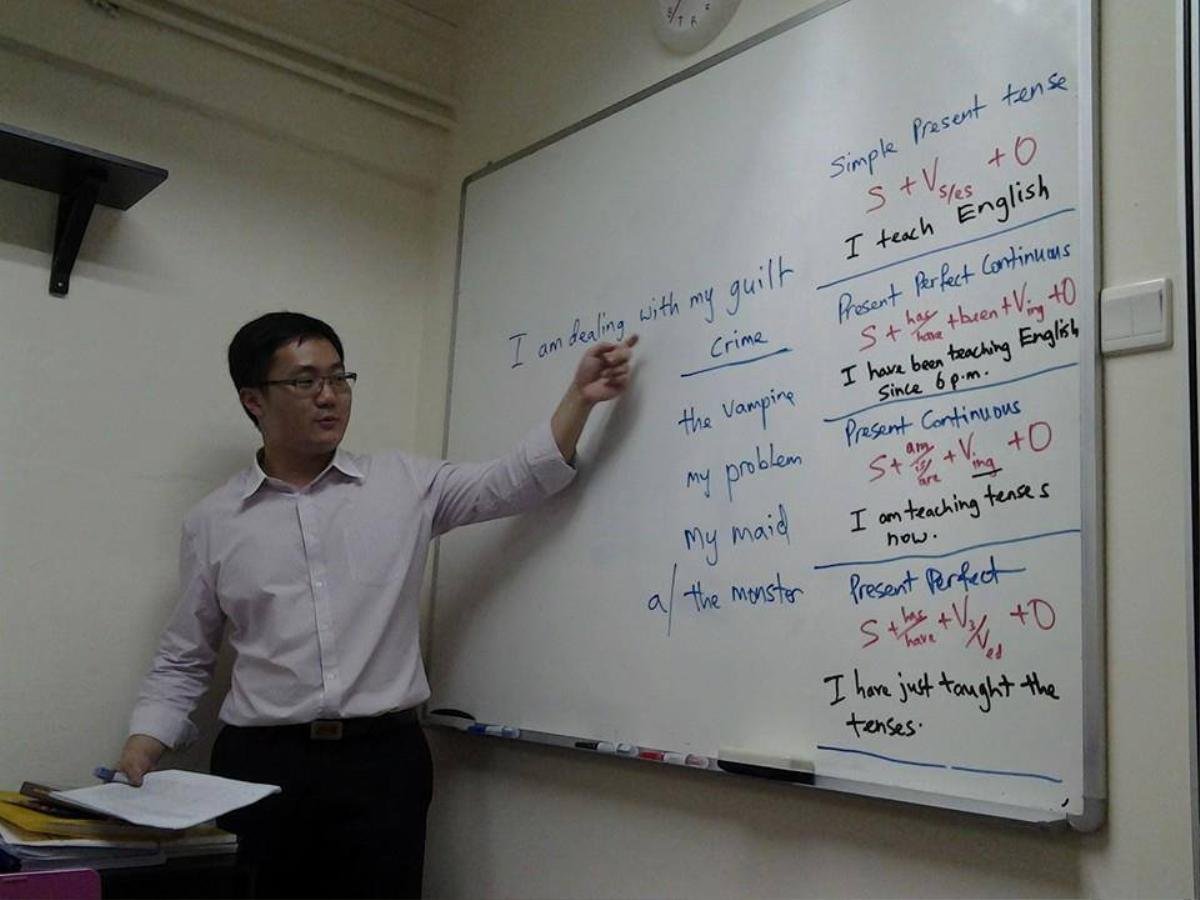 I am dealing with my guilt
crime
the vampire
my problem
my maid
a/ the monster
Simple Present tense
S + V s/es + O
I teach English
Present Perfect Continuous
S + has/have + been + Ving + O
I have been teaching English
since 6 p.m.
Present Continuous
S + am/is/are + Ving + O
I am teaching tenses
now.
Present Perfect
S + has/have + V3/Ved + O
I have just taught the
tenses.